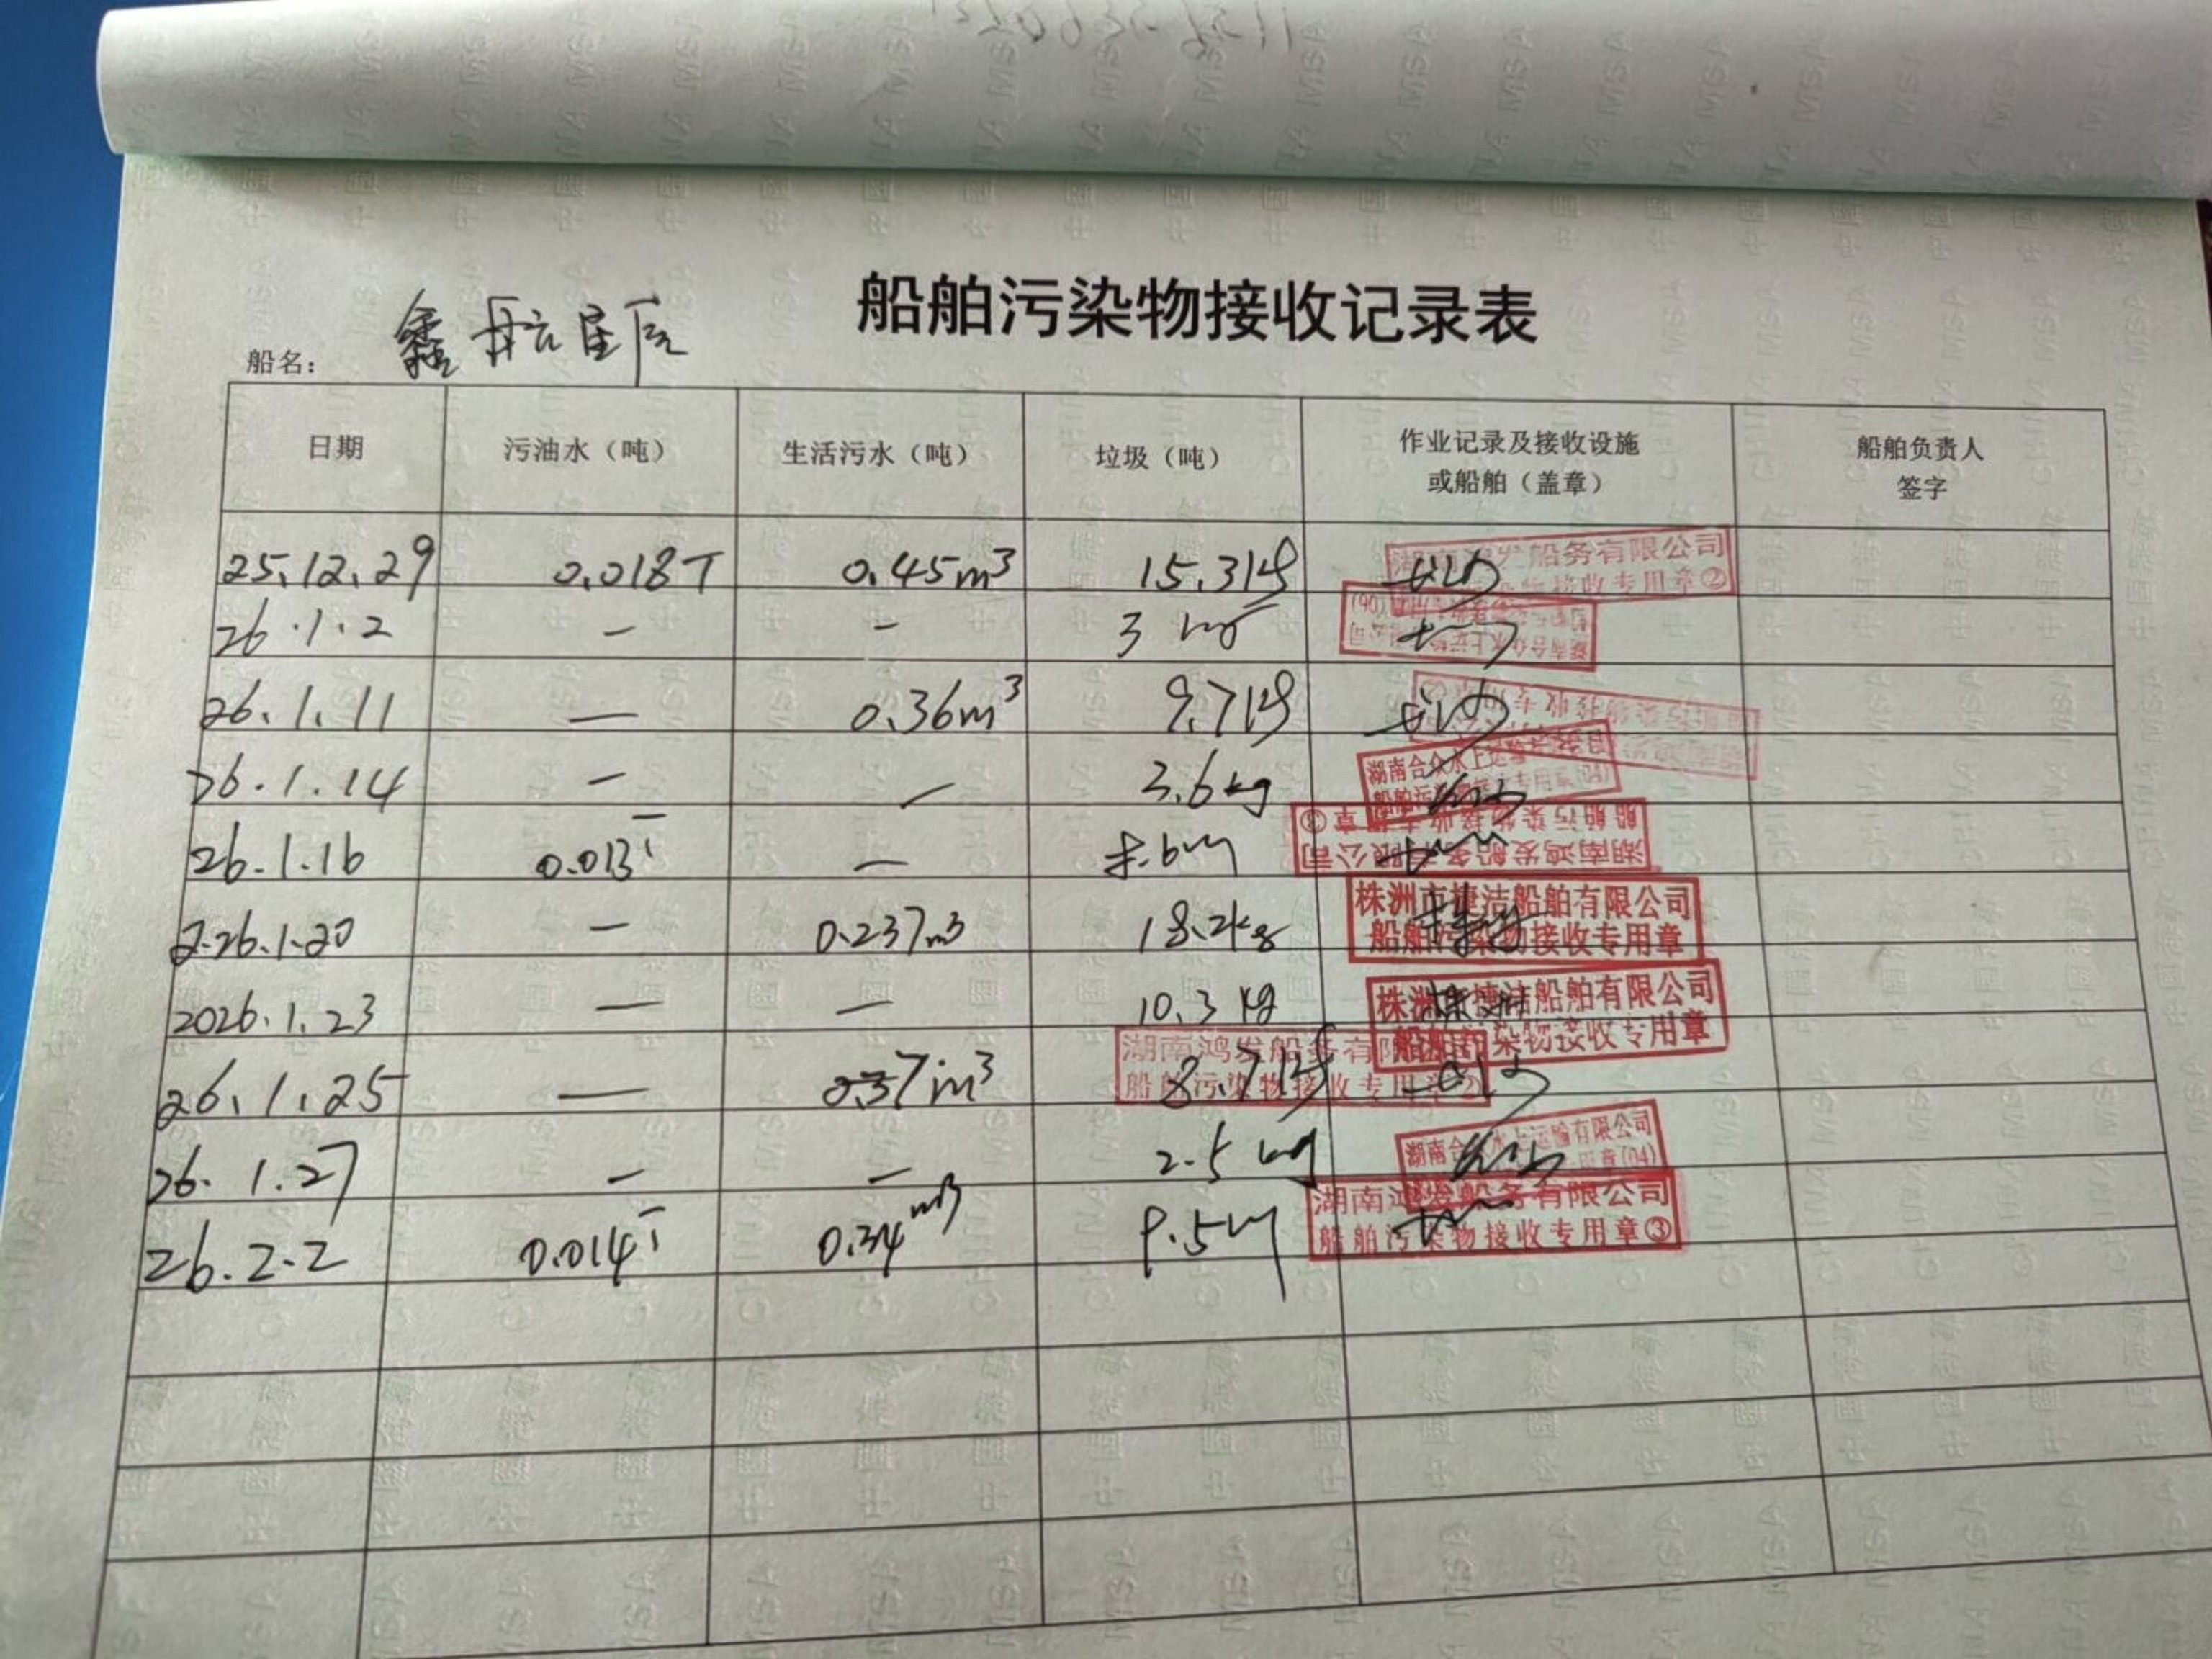 船舶污染物接收记录表
船名: 鑫航星辰
日期 污油水（吨） 生活污水（吨） 垃圾（吨） 作业记录及接收设施或船舶（盖章） 船舶负责人签字
25.12.29 0.018T 0.45m³ 15.3kg 湖南鸿发船务有限公司 船舶污染物接收专用章②
26.1.2 — — 3 kg
26.1.11 — 0.36m³ 9.7kg
26.1.14 — — 3.6kg 湖南合众水上运输有限公司 船舶污染物接收专用章(04)
26.1.16 0.013T — 8.6kg 湖南鸿发船务有限公司 船舶污染物接收专用章③
2026.1.20 — 0.237m³ 18.2kg 株洲市捷洁船舶有限公司 船舶污染物接收专用章
2026.1.23 — — 10.3kg 株洲市捷洁船舶有限公司 船舶污染物接收专用章
26.1.25 — 0.37m³ 8.7kg 湖南鸿发船务有限公司 船舶污染物接收专用章②
26.1.27 — — 2.5kg 湖南合众水上运输有限公司 专用章(04)
26.2.2 0.014T 0.34m³ 9.5kg 湖南鸿发船务有限公司 船舶污染物接收专用章③